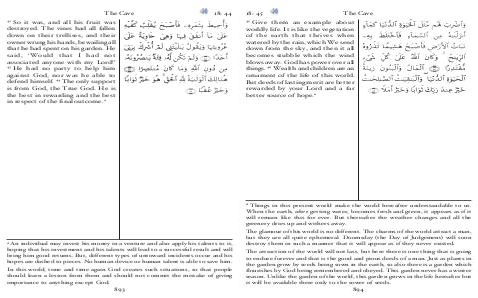 The Cave
18: 44
⁴² So it was, and all his fruit was
destroyed. The vines had all fallen
down on their trellises, and their
owner wrung his hands, bewailing all
that he had spent on his garden. He
said, 'Would that I had not
associated anyone with my Lord!'
⁴³ He had no party to help him
against God, nor was he able to
defend himself. ⁴⁴ The only support
is from God, the True God. He is
the best in rewarding and the best
in respect of the final outcome.ᵃ
وَأُحِيطَ بِثَمَرِهِۦ فَأَصْبَحَ يُقَلِّبُ كَفَّيْهِ
عَلَىٰ مَآ أَنفَقَ فِيهَا وَهِىَ خَاوِيَةٌ عَلَىٰ
عُرُوشِهَا وَيَقُولُ يَٰلَيْتَنِى لَمْ أُشْرِكْ بِرَبِّىٓ
أَحَدًا ۝ وَلَمْ تَكُن لَّهُۥ فِئَةٌ يَنصُرُونَهُۥ
مِن دُونِ ٱللَّهِ وَمَا كَانَ مُنتَصِرًا ۝
هُنَالِكَ ٱلْوَلَٰيَةُ لِلَّهِ ٱلْحَقِّ هُوَ خَيْرٌ ثَوَابًا
وَخَيْرٌ عُقْبًا ۝
ᵃ An individual may invest his money in a venture and also apply his talents to it,
hoping that his investment and his talents will lead to a successful result and will
bring him good returns. But, different types of untoward incidents occur and his
hopes are dashed to pieces. No human device or human talent is able to save him.
In this world, time and time again God creates such situations, so that people
should learn a lesson from them and should not commit the mistake of giving
importance to anything except God.
893
18: 45
The Cave
⁴⁵ Give them an example about
worldly life. It is like the vegetation
of the earth that thrives when
watered by the rain, which We send
down from the sky, and then it all
becomes stubble which the wind
blows away. God has power over all
things. ⁴⁶ Wealth and children are an
ornament of the life of this world.
But deeds of lasting merit are better
rewarded by your Lord and a far
better source of hope.ᵃ
وَٱضْرِبْ لَهُم مَّثَلَ ٱلْحَيَوٰةِ ٱلدُّنْيَا كَمَآءٍ
أَنزَلْنَٰهُ مِنَ ٱلسَّمَآءِ فَٱخْتَلَطَ بِهِۦ
نَبَاتُ ٱلْأَرْضِ فَأَصْبَحَ هَشِيمًا تَذْرُوهُ
ٱلرِّيَٰحُ وَكَانَ ٱللَّهُ عَلَىٰ كُلِّ شَىْءٍ
مُّقْتَدِرًا ۝ ٱلْمَالُ وَٱلْبَنُونَ زِينَةُ
ٱلْحَيَوٰةِ ٱلدُّنْيَا وَٱلْبَٰقِيَٰتُ ٱلصَّٰلِحَٰتُ
خَيْرٌ عِندَ رَبِّكَ ثَوَابًا وَخَيْرٌ أَمَلًا ۝
ᵃ Things in this present world make the world hereafter understandable to us.
When the earth, after getting water, becomes fresh and green, it appears as if it
will remain like this for ever. But thereafter the weather changes and all the
greenery dries up and withers away.
The glamour of this world is no different. The charms of the world attract a man,
but they are all quite ephemeral. Doomsday (the Day of Judgement) will soon
destroy them in such a manner that it will appear as if they never existed.
The attraction of the world will not last, but here there is one thing that is going
to endure forever and that is the good and pious deeds of a man. Just as plants in
the garden grow by seeds being sown in the earth, so also there is a garden which
flourishes by God being remembered and obeyed. This garden never has a winter
season. Unlike the garden of the world, this garden grows in the life hereafter but
it will be available there only to the sower of seeds.
894